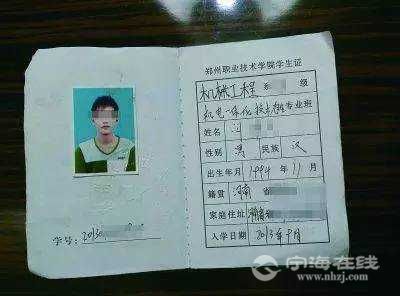 学号:2013
郑州职业技术学院学生证
机械工程系 级
机电一体化技术 专业 班
姓名 汪
性别 男 民族 汉
出生年月 1994年11月
籍贯 河南省
家庭住址 河南省
入学日期 2013年9月
宁海在线
www.nhzj.com